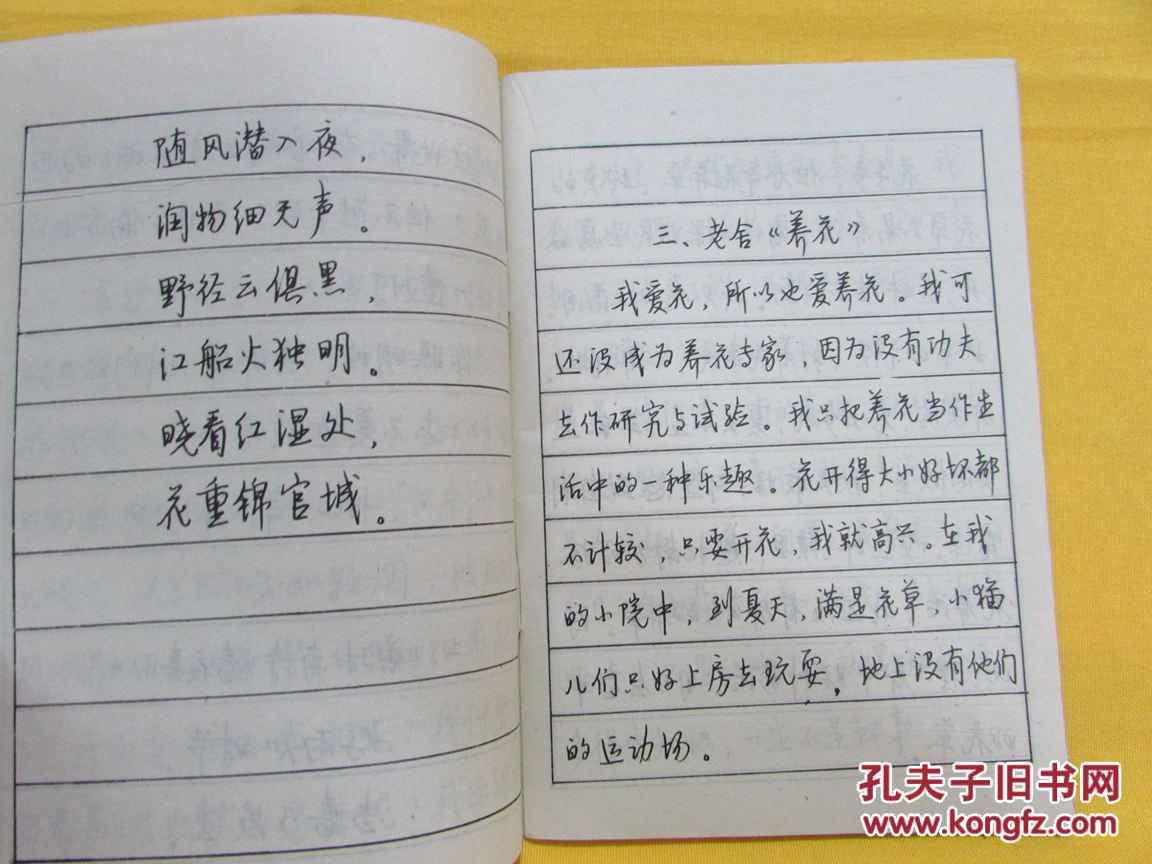 随风潜入夜，
润物细无声。
野径云俱黑，
江船火独明。
晓看红湿处，
花重锦官城。
三、老舍《养花》
我爱花，所以也爱养花。我可
还没成为养花专家，因为没有功夫
去作研究与试验。我只把养花当作生
活中的一种乐趣。花开得大小好坏都
不计较，只要开花，我就高兴。在我
的小院中，到夏天，满是花草，小猫
儿们只好上房去玩耍，地上没有他们
的运动场。
孔夫子旧书网
www.kongfz.com